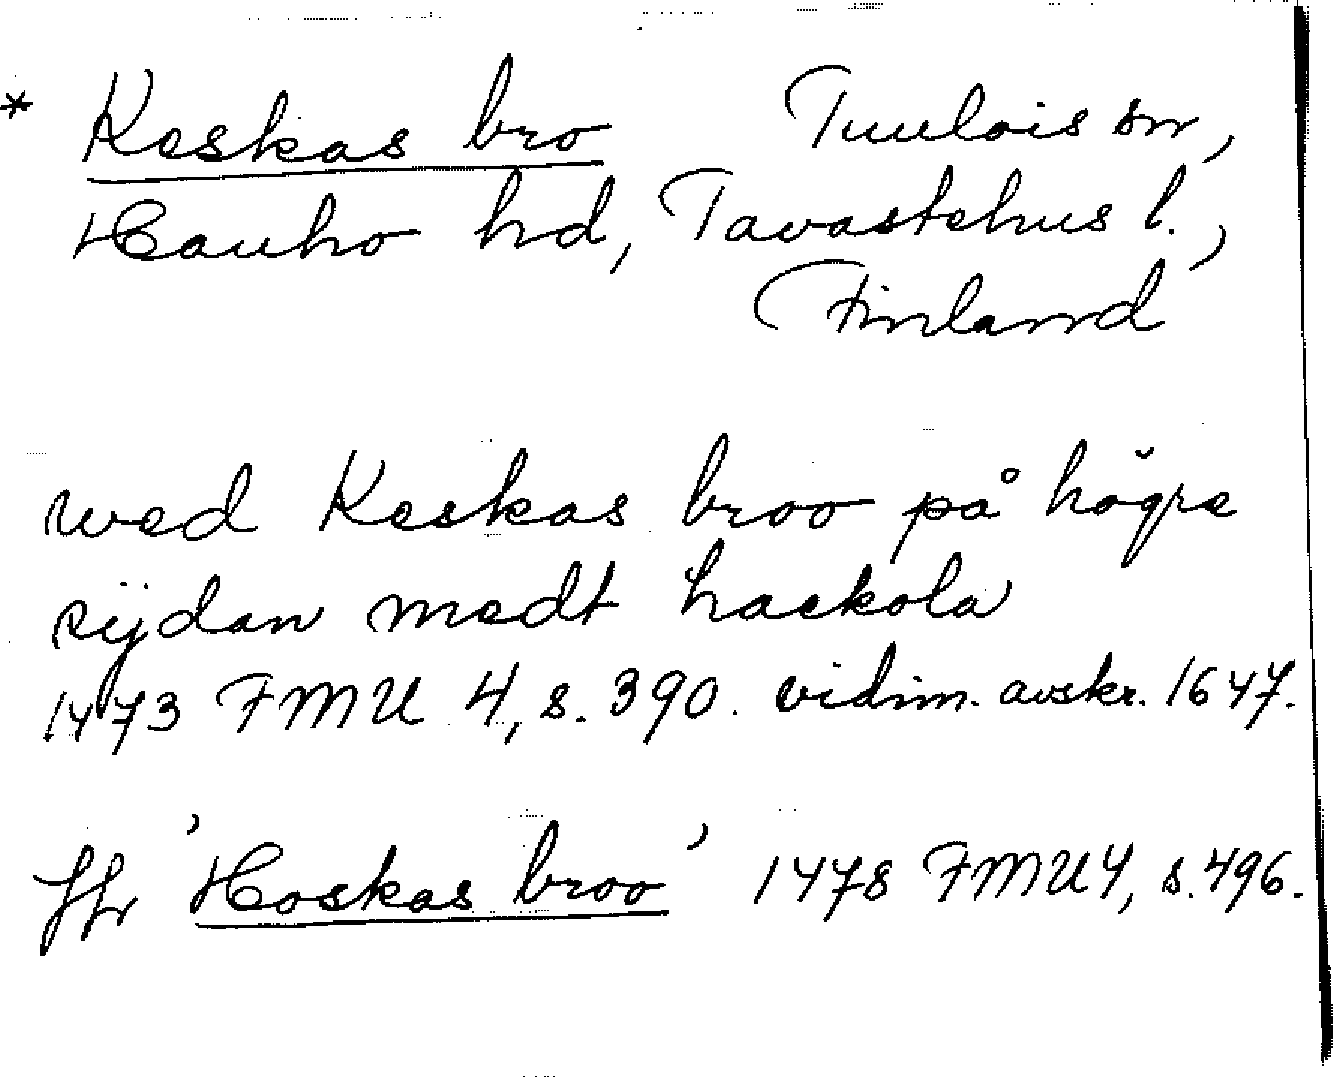 * Keskas bro Tuulois sn,
Hauho hd, Tavastehus l.,
Finland
wed Keskas broo på högre
sijdan medt hackola
1473 FMU 4, s. 390. vidim. avskr. 1647.
Jfr 'Hoskas broo' 1478 FMU 4, s. 496.